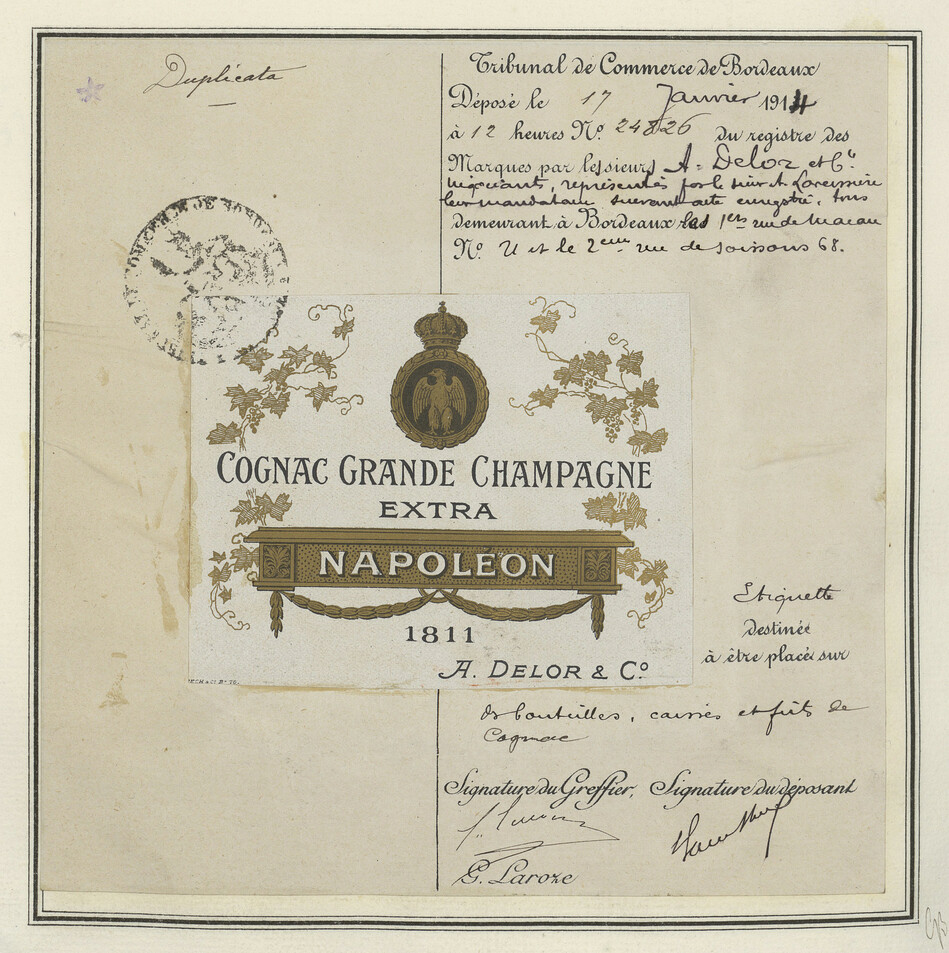 Duplicata
Tribunal de Commerce de Bordeaux
Déposé le 17 Janvier 1914
à 12 heures No. 24826 du registre des
Marques par les sieurs A. Delor et Cie
négociants, représentés par le sieur A.
leur mandataire suivant acte enregistré, tous
demeurant à Bordeaux les 1ers rue de Macau
No. et le 2eme rue de Soissons 68.
COGNAC GRANDE CHAMPAGNE
EXTRA
NAPOLÉON
1811
A. DELOR & Co.
Etiquette
destinée
à être placée sur
des bouteilles, caisses et fûts de
Cognac
Signature du Greffier, Signature du déposant
G. Laroze